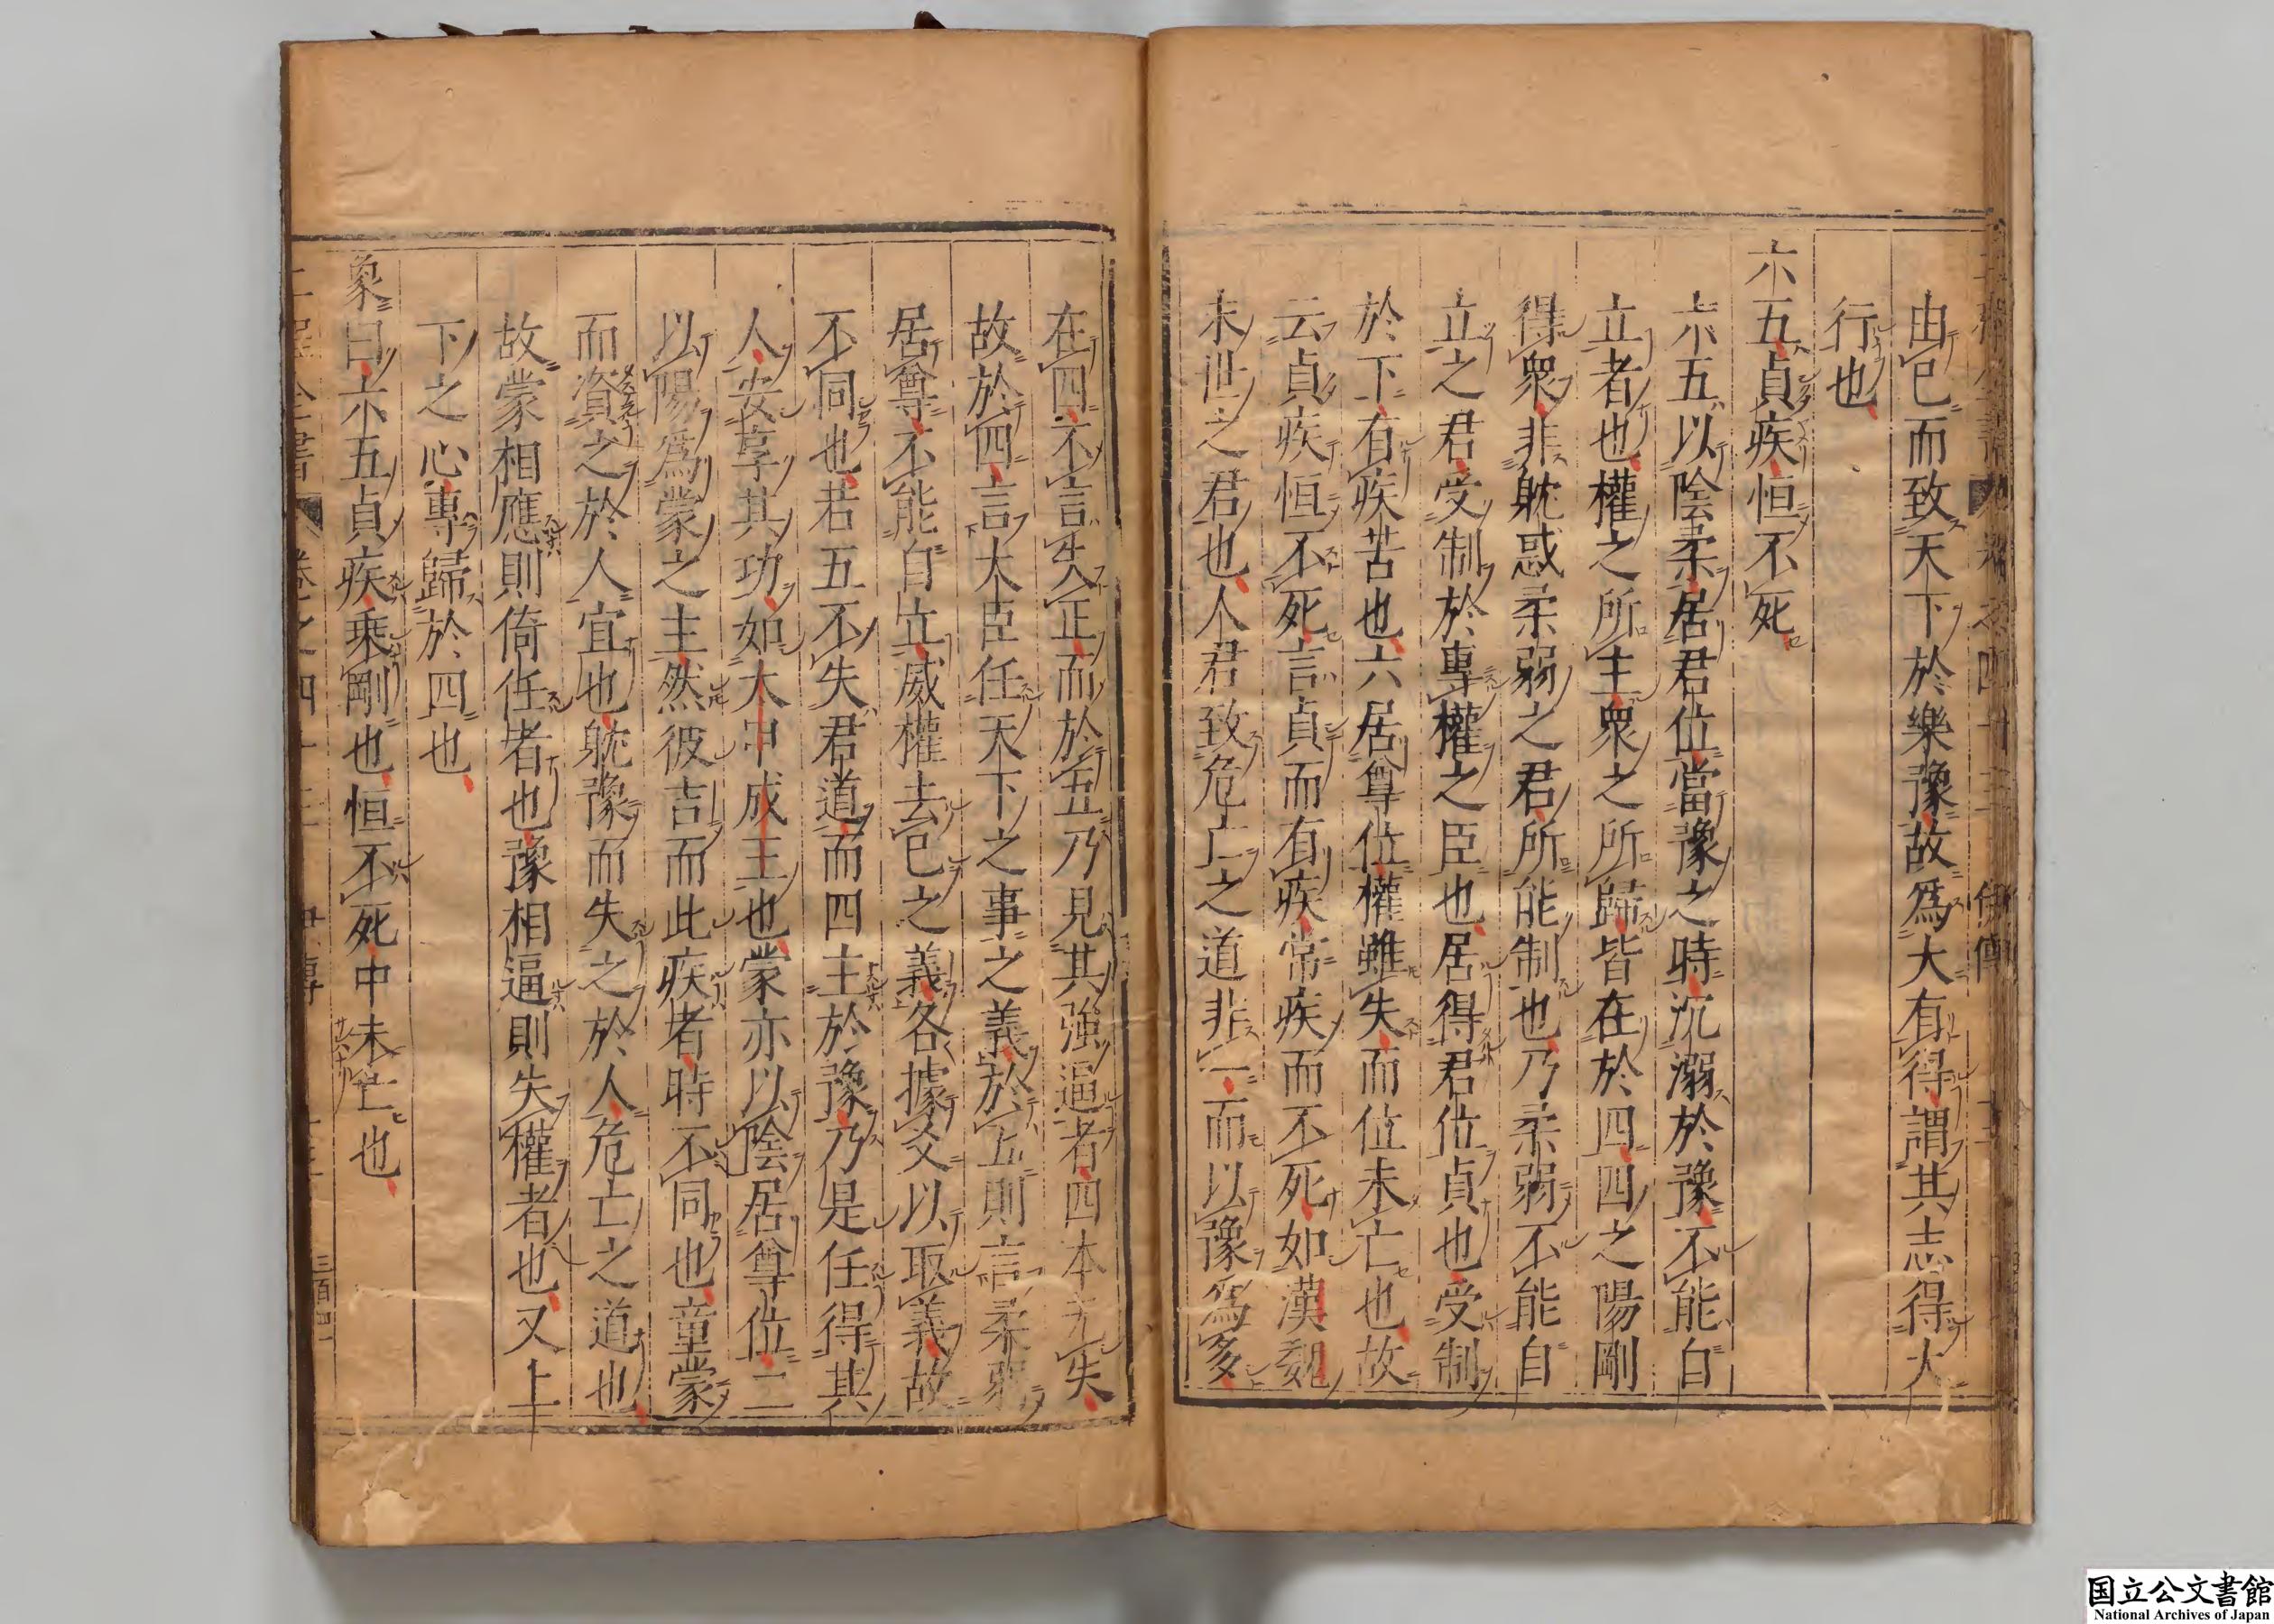 由已而致天下於樂豫故爲大有得謂其志得大
行也
六五貞疾恒不死
六五以陰柔居君位當豫之時沉溺於豫不能自
立者也權之所主衆之所歸皆在於四四之陽剛
得衆非躭惑柔弱之君所能制也乃柔弱不能自
立之君受制於專權之臣也居得君位貞也受制
於下有疾苦也六居尊位權雖失而位未亡也故
云貞疾恒不死言貞而有疾常疾而不死如漢魏
末世之君也人君致危亡之道非一而以豫爲多
在四不言失正而於五乃見其強逼者四本无失
故於四言大臣任天下之事之義於五則言柔弱
居尊不能自立威權去已之義各據爻以取義故
不同也若五不失君道而四主於豫乃是任得其
人安享其功如太甲成王也蒙亦以陰居尊位二
以陽爲蒙之主然彼吉而此疾者時不同也童蒙
而資之於人宜也躭豫而失之於人危亡之道也
故蒙相應則倚任者也豫相逼則失權者也又上
下之心專歸於四也
象曰六五貞疾乗剛也恒不死中未亡也
二程全書 卷之四十三 伊傳
三百四
国立公文書館
National Archives of Japan